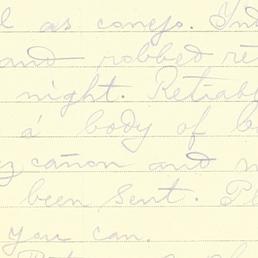 l as canejo. Ind
and robbed re
night. Reliab
a body of
cañon and
been sent. Pl
you can.